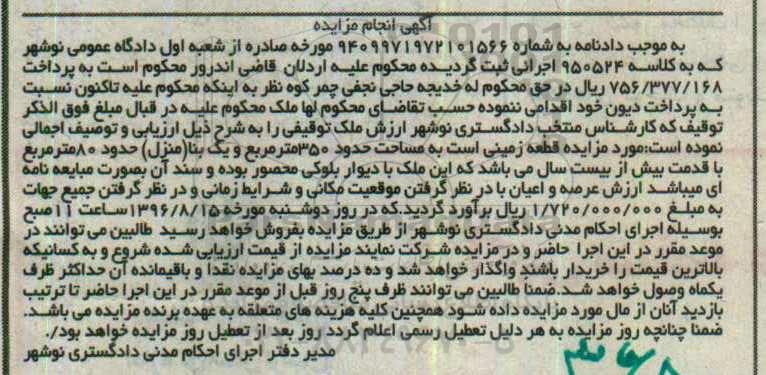 آگهی انجام مزایده
به موجب دادنامه به شماره ۹۴۰۹۹۷۱۹۷۲۱۰۱۵۶۶ مورخه صادره از شعبه اول دادگاه عمومی نوشهر
که به کلاسه ۹۵۰۵۲۴ اجرائی ثبت گردیده محکوم علیه اردلان قاضی اندرور محکوم است به پرداخت
۷۵۶/۳۷۷/۱۶۸ ریال در حق محکوم له خدیجه حاجی نجفی چمر کوه نظر به اینکه محکوم علیه تاکنون نسبت
به پرداخت دیون خود اقدامی ننموده حسب تقاضای محکوم لها ملک محکوم علیه در قبال مبلغ فوق الذکر
توقیف که کارشناس منتخب دادگستری نوشهر ارزش ملک توقیفی را به شرح ذیل ارزیابی و توصیف اجمالی
نموده است:مورد مزایده قطعه زمینی است به مساحت حدود ۳۵۰مترمربع و یک بنا(منزل) حدود ۸۰مترمربع
با قدمت بیش از بیست سال می باشد که این ملک با دیوار بلوکی محصور بوده و سند آن بصورت مبایعه نامه
ای میباشد ارزش عرصه و اعیان با در نظر گرفتن موقعیت مکانی و شرایط زمانی و در نظر گرفتن جمیع جهات
به مبلغ ۱/۷۲۰/۰۰۰/۰۰۰ ریال برآورد گردید.که در روز دوشنبه مورخه ۱۳۹۶/۸/۱۵ساعت ۱۱صبح
بوسیله اجرای احکام مدنی دادگستری نوشهر از طریق مزایده بفروش خواهد رسید طالبین می توانند در
موعد مقرر در این اجرا حاضر و در مزایده شرکت نمایند مزایده از قیمت ارزیابی شده شروع و به کسانیکه
بالاترین قیمت را خریدار باشند واگذار خواهد شد و ده درصد بهای مزایده نقدا و باقیمانده آن حداکثر ظرف
یکماه وصول خواهد شد.ضمنا طالبین می توانند ظرف پنج روز قبل از موعد مقرر در این اجرا حاضر تا ترتیب
بازدید آنان از مال مورد مزایده داده شود همچنین کلیه هزینه های متعلقه به عهده برنده مزایده می باشد.
ضمنا چنانچه روز مزایده به هر دلیل تعطیل رسمی اعلام گردد روز بعد از تعطیل روز مزایده خواهد بود/.
مدیر دفتر اجرای احکام مدنی دادگستری نوشهر